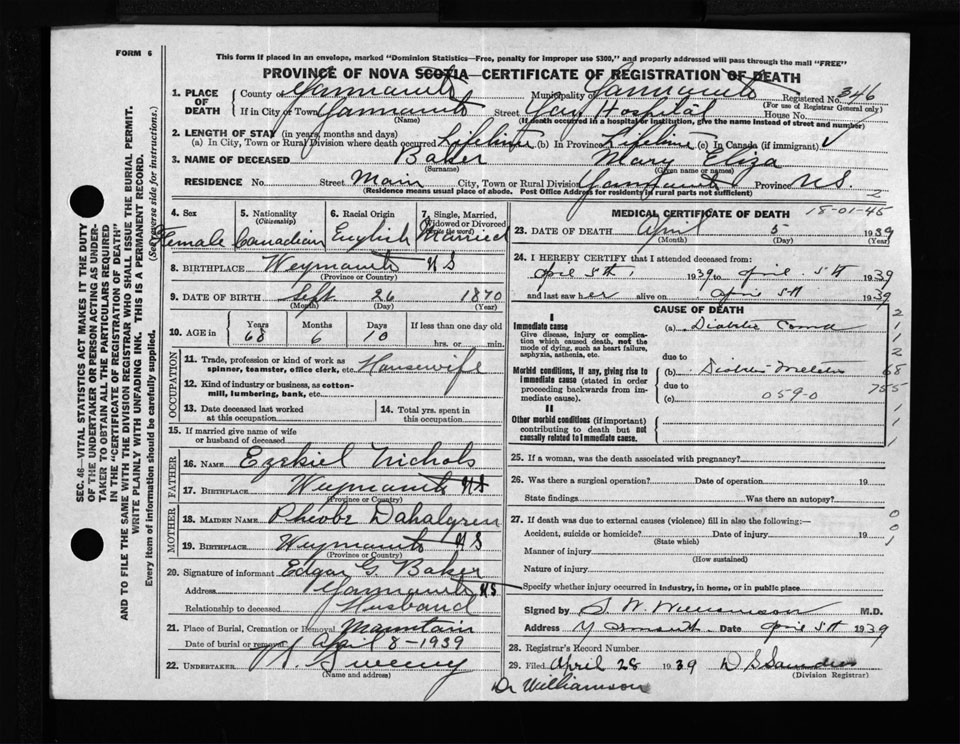 FORM 6
This form if placed in an envelope, marked "Dominion Statistics—Free, penalty for improper use $300," and properly addressed will pass through the mail "FREE"
PROVINCE OF NOVA SCOTIA—CERTIFICATE OF REGISTRATION OF DEATH
1. PLACE OF DEATH County of Yarmouth Municipality of Yarmouth Registered No. 346
(For use of Registrar General only)
If in City or Town Yarmouth Street Hospital House No.
(Name) (If death occurred in a hospital or institution, give the name instead of street and number)
2. LENGTH OF STAY (in years, months and days)
(a) In City, Town or Rural Division where death occurred Lifetime (b) In Province Lifetime (c) In Canada (if immigrant)
3. NAME OF DECEASED Baker Mary Eliza
(Surname) (Given name or names)
RESIDENCE No. Street Main City, Town or Rural Division Yarmouth Province N.S.
(Residence means usual place of abode. Post Office Address for residents in rural parts not sufficient)
2
4. Sex 5. Nationality (Citizenship) 6. Racial Origin 7. Single, Married, Widowed or Divorced (write the word)
Female Canadian English Married
8. BIRTHPLACE Weymouth N S
(Province or Country)
9. DATE OF BIRTH Sept. 26 1870
(Month) (Day) (Year)
10. AGE in Years Months Days If less than one day old
68 6 10 hrs. or min.
OCCUPATION
11. Trade, profession or kind of work as spinner, teamster, office clerk, etc. Housewife
12. Kind of industry or business, as cotton-mill, lumbering, bank, etc.
13. Date deceased last worked at this occupation 14. Total yrs. spent in this occupation
15. If married give name of wife or husband of deceased
FATHER
16. NAME Ezekiel Nichols
17. BIRTHPLACE Weymouth N S
(Province or Country)
MOTHER
18. MAIDEN NAME Pheobe Dahalgren
19. BIRTHPLACE Weymouth N S
(Province or Country)
20. Signature of informant Edgar G. Baker
Address Yarmouth N S
Relationship to deceased Husband
21. Place of Burial, Cremation or Removal Mountain
Date of burial or removal April 8-1939
22. UNDERTAKER Sweeny
(Name and address)
MEDICAL CERTIFICATE OF DEATH 18-01-45
23. DATE OF DEATH April 5 1939
(Month) (Day) (Year)
24. I HEREBY CERTIFY that I attended deceased from:
April 5th, 1939 to April 5th 1939
and last saw her alive on April 5th 1939
CAUSE OF DEATH
I
Immediate cause (a) Diabetic Coma
Give disease, injury or complication which caused death, not the mode of dying, such as heart failure, asphyxia, asthenia, etc.
due to
Morbid conditions, if any, giving rise to immediate cause (stated in order proceeding backwards from immediate cause).
(b)
due to
(c) 059-0
II
Other morbid conditions (if important) contributing to death but not causally related to immediate cause.
2
1
1
2
68
755
1
1
1
25. If a woman, was the death associated with pregnancy?
26. Was there a surgical operation? Date of operation 19
State findings Was there an autopsy?
27. If death was due to external causes (violence) fill in also the following:—
Accident, suicide or homicide? Date of injury 19
(State which)
Manner of injury
(How sustained)
Nature of injury
Specify whether injury occurred in industry, in home, or in public place
0
0
1
Signed by S. W. Williamson M.D.
Address Yarmouth Date April 5th 1939
28. Registrar's Record Number
29. Filed April 28 1939 D S Saunders
(Division Registrar)
Dr Williamson
SEC. 46—VITAL STATISTICS ACT MAKES IT THE DUTY
OF THE UNDERTAKER OR PERSON ACTING AS UNDER-
TAKER TO OBTAIN ALL THE PARTICULARS REQUIRED
IN THE "CERTIFICATE OF REGISTRATION OF DEATH"
AND TO FILE THE SAME WITH THE DIVISION REGISTRAR WHO SHALL ISSUE THE BURIAL PERMIT.
WRITE PLAINLY WITH UNFADING INK. THIS IS A PERMANENT RECORD.
Every item of information should be carefully supplied. (See reverse side for instructions.)